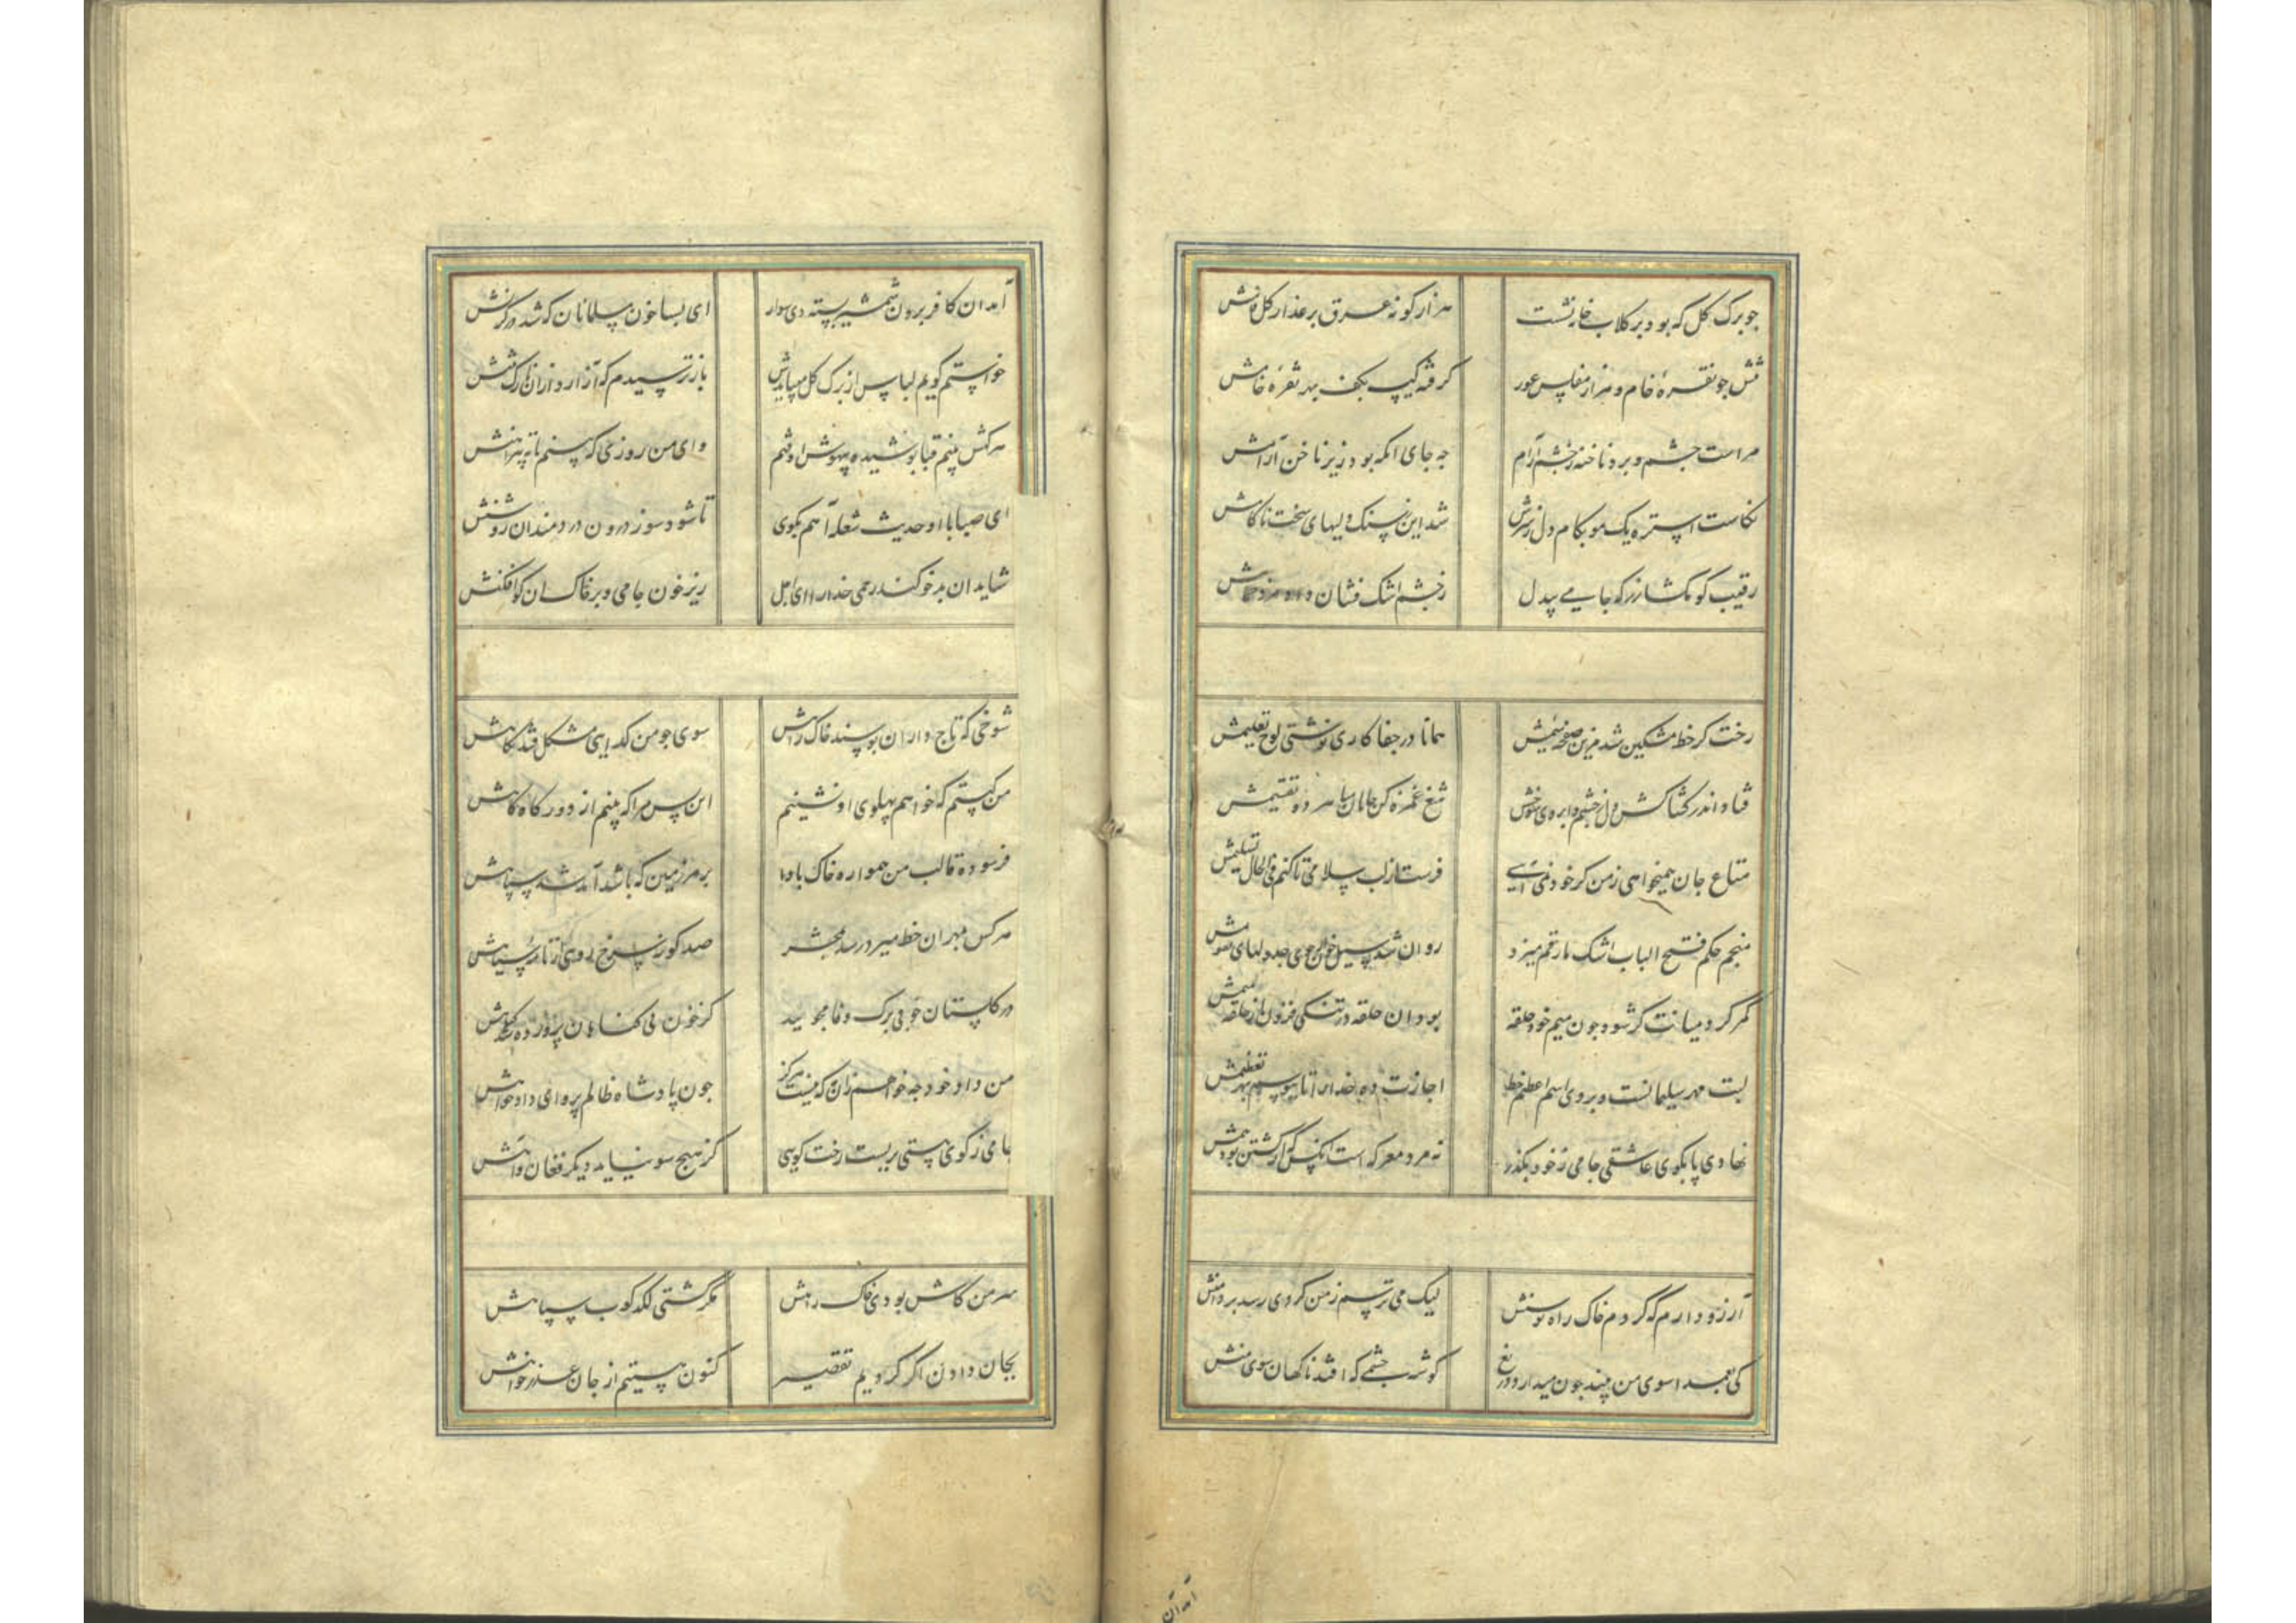 جو برک کل که بود بر کلاب خانه نشست هزار کونه عرق بر عذار کل
تنش جو نقره خام و هزار مفلس عور کرفته کیسه بکف بهر نقره خامش
مراست جشم و برو ناخنه ز جشم آرام جه جای انکه بود زیر ناخن آرامش
نکاست استره یک مو بکام دل ز سرش شد این ز سنک دلیهای سخت ناکامش
رقیب کو مکشا زر که جامی بیدل ز جشم اشک فشان داد
رخت کز خط مشکین شد مزین صفحه سیمش همانا در جفاکاری نوشتی لوح تعلیمش
فتاد اندر کشاکش دل ز جشم و ابروی شوخش تیغ غمزه کن جانان میان هر دو تقسیمش
متاع جان همیخواهی ز من کر خود نمی آیی فرست از لب سلامی تا کنم فی الحال تسلیمش
منجم حکم فتح الباب اشک ما رقم میزد روان شد سیل خون از جوی جدولهای تقویمش
کمر کرد میانت کر شود جون میم خود حلقه بود آن حلقه در تنکی فزون از حلقه میمش
لبت مهر سلیمانست و بر وی اسم اعظم خط اجازت ده خدا را تا ببوسم بهر تعظیمش
نهادی پا بکوی عاشقی جامی ز خود بکذر نه مرد معرکه است انکس که از کشتن بود بیمش
آرزو دارم که کردم خاک راه توسنش لیک می ترسم ز من کردی رسد بر دامنش
کی بعمدا سوی من بیند جون میدارد دریغ کوشه جشمی که افتد ناکهان سوی منش
آمد ان
آمد ان کافر برون شمشیر بسته دی سوار ای بسا خون مسلمانان که شد در کردنش
خواستم کویم لباس از برک کل میبایدش باز ترسیدم که آزارد از ان نازک تنش
هر کش بینم قبا پوشیده بیهوش اوفتم وای من روزی که بینم ته پیراهنش
ای صبا با او حدیث شعله آهم بکوی تا شود سوز درون دردمندان روشنش
شاید ان بدخو کند رحمی خدا را ای اجل ریز خون جامی و بر خاک ان کو افکنش
شوخی که تاجداران بوسند خاک راهش سوی جو من کدایی مشکل فتد نکاهش
من کیستم که خواهم پهلوی او نشینم این بس مرا که بینم از دور کاه کاهش
فرسوده قالب من همواره خاک بادا بر هر زمین که باشد آمد شد سپاهش
هر کس بمهر ان خط میرد رسد بمحشر صد کونه سرخ رویی از نامه سیاهش
در کلستان خوبی برک وفا مجویید کز خون بی کناهان پرورده شد کیاهش
من داد خود جه خواهم زان که نیست هرکز جون پادشاه ظالم پروای دادخواهش
جامی ز کوی هستی بربست رخت کویی کز هیچ سو نیاید دیکر فغان و آهش
سر من کاش بودی خاک راهش مکر کشتی لکدکوب سپاهش
بجان دادن اکر کردیم تقصیر کنون هستیم از جان عذرخواهش